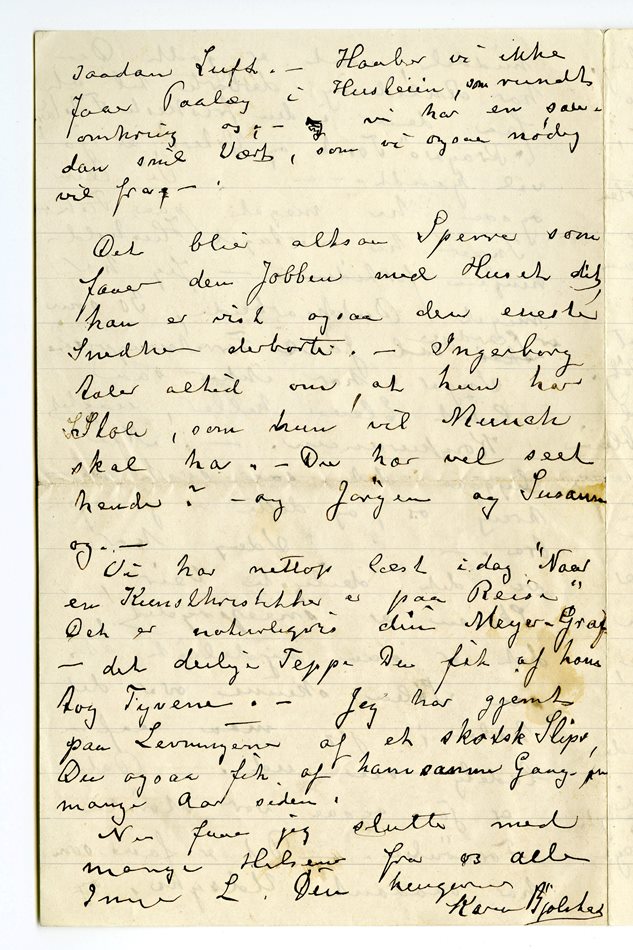 saadan Luft. – Haaber vi ikke
faaer Paalæg i Husleien, som rundt
omkring os, – vi har en saa-
dan snil Vært, som vi ogsaa nødig
vil fra, – .
Det blir altsaa Sperre som
faaer den Jobben med Huset dit,
han er vist ogsaa den eneste
Snedker derborte. – Ingerborg
taler altid om, at hun har
Stole, som hun vil Munch
skal ha. – Du har vel seet
hende? – og Jörgen og Susanne
og. –
Vi har nettop læst idag "Naar
en Kunstkritikker er paa Reise"
Det er naturligvis din Meyer-Gräf
– det deilige Teppe Du fik af ham
tog Tyvene. – Jeg har gjemt
paa Levningerne af et skotsk Slips,
Du ogsaa fik af ham samme Gang for
mange Aar siden.
Nu faar jeg slutte med
mange Hilsener fra os alle
Inger L. Din hengivne
Karen Bjölstad